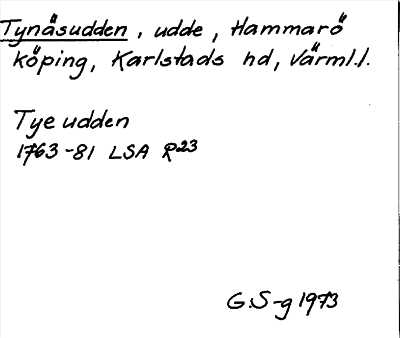 Tynäsudden, udde, Hammarö
köping, Karlstads hd, Värml.l.
Tye udden
1763-81 LSA R23
G.S-g 1973